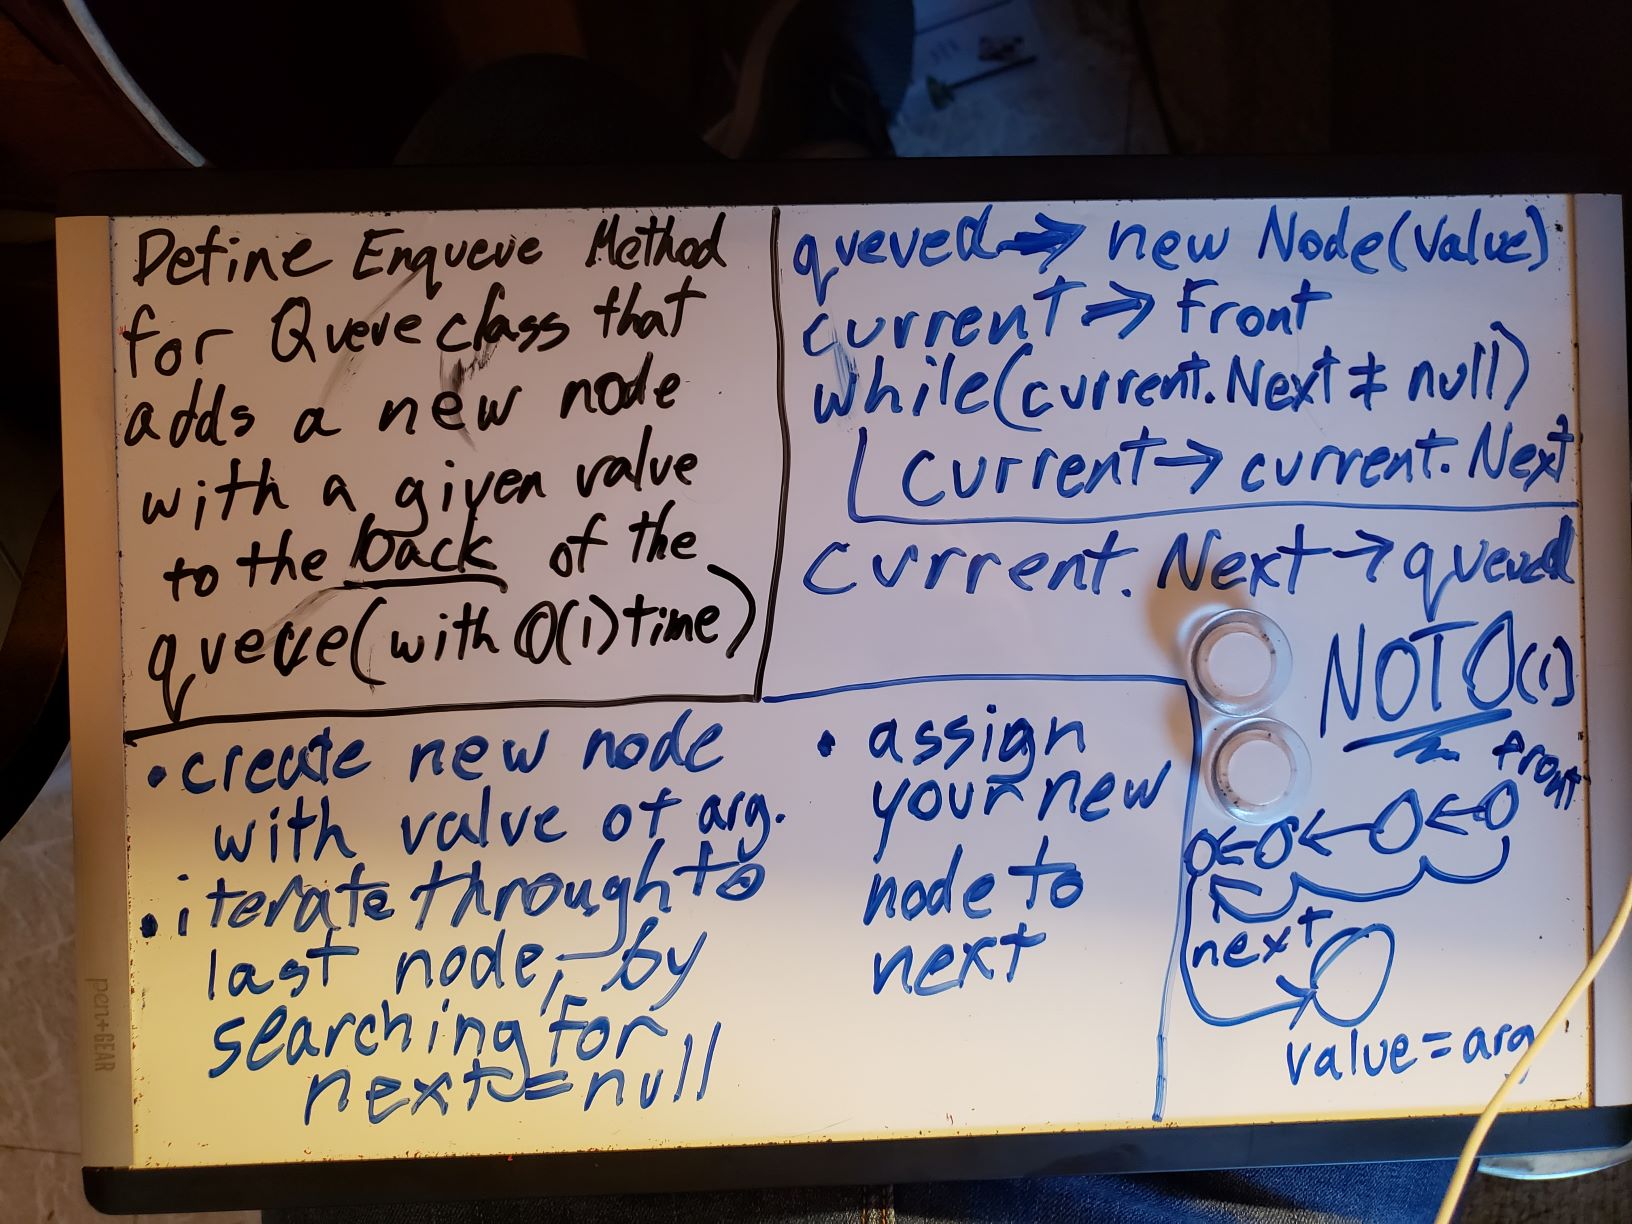 Define Enqueue Method
for Queue class that
adds a new node
with a given value
to the back of the
queue (with O(1) time)
queued ⇒ new Node(Value)
current ⇒ Front
while(current.Next ≠ null)
current → current.Next
current.Next → queued
NOT O(1)
• create new node
with value of arg.
• iterate through to
last node, by
searching for
next = null
• assign
your new
node to
next
front
next
value = arg
pen+GEAR